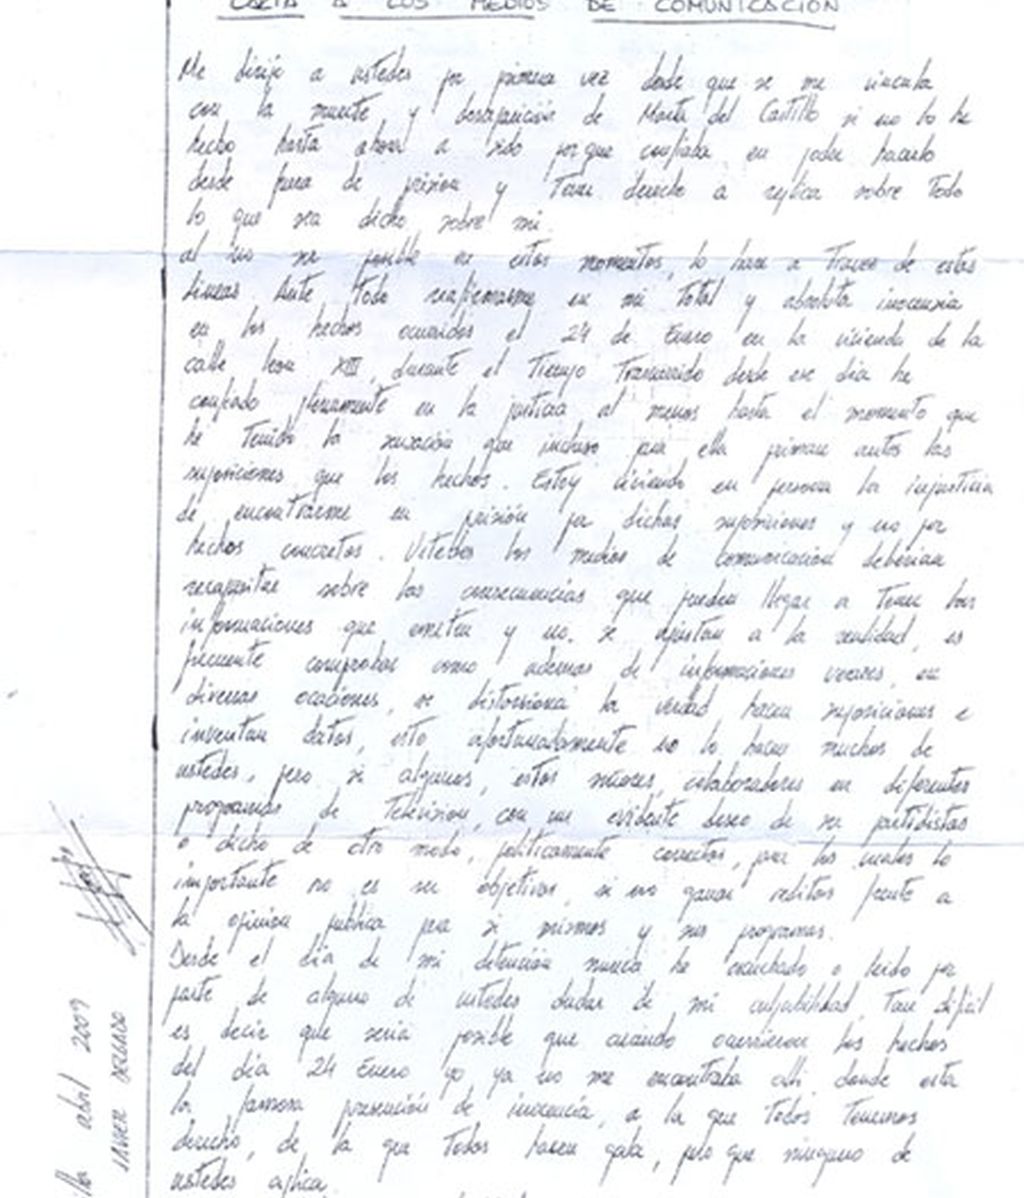 CARTA A LOS MEDIOS DE COMUNICACIÓN
Me dirijo a ustedes por primera vez desde que se me vincula
con la muerte y desaparición de Marta del Castillo si no lo he
hecho hasta ahora a sido porque confiaba en poder hacerlo
desde fuera de prision y tener derecho a replica sobre todo
lo que sea dicho sobre mi.
al no ser posible en estos momentos, lo hare a traves de estas
lineas. Ante todo reafirmarme en mi total y absoluta inocencia
en los hechos ocurridos el 24 de Enero en la vivienda de la
calle leon XIII, durante el tiempo transcurrido desde ese dia he
confiado plenamente en la justicia al menos hasta el momento que
he tenido la sensación que incluso para ella priman antes las
suposiciones que los hechos. Estoy viviendo en persona la injusticia
de encontrarme en prisión por dichas suposiciones y no por
hechos concretos. Ustedes los medios de comunicación deberian
recapacitar sobre las consecuencias que pueden llegar a tener las
informaciones que emiten y no se ajustan a la realidad, es
frecuente comprobar como ademas de informaciones veraces, en
diversas ocaciones, se distorsiona la verdad, hacen suposiciones e
inventan datos, esto afortunadamente no lo hacen muchos de
ustedes, pero si algunos, estos señores, colaboradores en diferentes
programas de television, con un evidente deseo de ser partidistas
o dicho de otro modo, politicamente correctos, para los cuales lo
importante no es ser objetivos, si no ganar reditos frente a
la opinion publica para si mismos y sus programas.
Desde el día de mi detención nunca he escuchado o leido por
parte de alguno de ustedes dudar de mi culpabilidad, tan dificil
es decir que seria posible que cuando ocurrieron los hechos
del día 24 Enero yo ya no me encontraba alli, donde esta
la famosa presención de inocencia, a la que todos tenemos
derecho, de la que todos hacen gala, pero que ninguno de
ustedes aplica.
abril 2009
JAVIER DELGADO